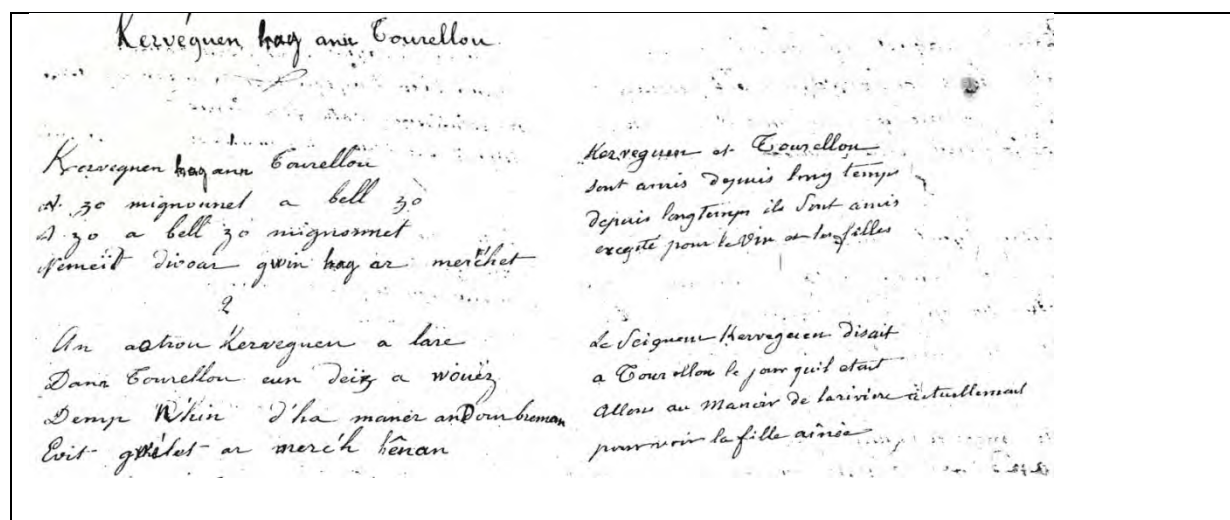 Kervéguen hag ann Tourellou
Kerveguen hag ann Tourellou
A zo mignounet a bell zo
A zo a bell zo mignonnet
Nemeit divoar gwin hag ar merc'het
2
An aotrou Kerveguen a lare
Dann Tourellou eun deiz a wouéz
Demp d'ha maner an Dour breman
Evit gwelet ar merc'h hênan
Kerveguen et Tourellou
Sont amis depuis long temps
depuis longtemps ils Sont amis
excepté pour le vin et les filles
Le Seigneur Kerveguen disait
a Tourellou le jour qu'il etait
Allons au Manoir de la rivière actuellement
pour voir la fille aînée